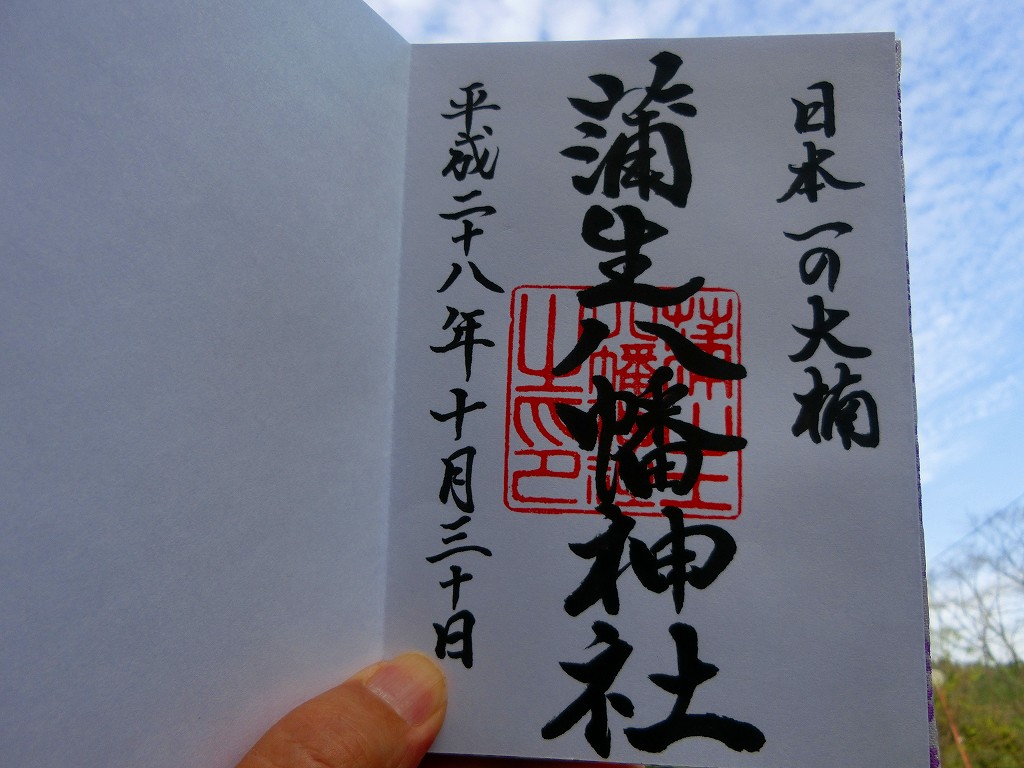 日本一の大楠
蒲生八幡神社
蒲生
八幡神社
之印
平成二十八年十月三十日